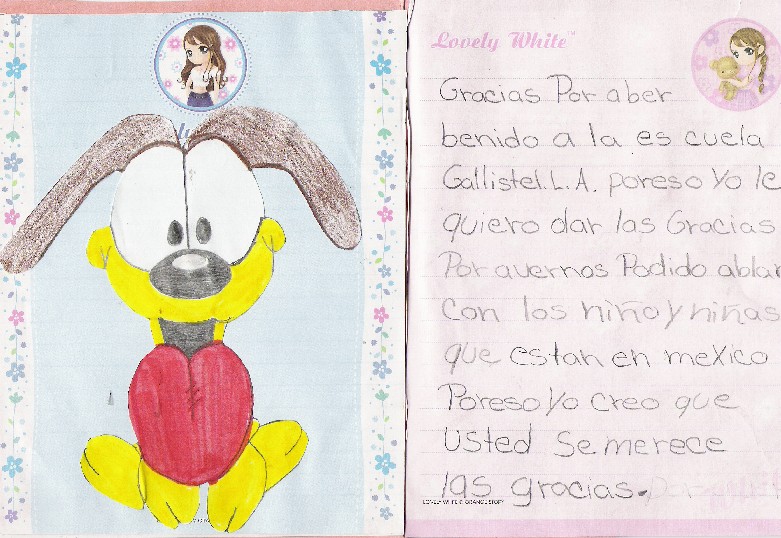 Lovely White™
Gracias Por aber
benido a la es cuela
Gallistel.L.A. poreso Yo le
quiero dar las Gracias
Por avernos Podido ablar
con los niño y niñas
que estan en mexico
Poreso Yo creo que
Usted Se merece
las gracias.
LOVELY WHITE © ORANGE STORY